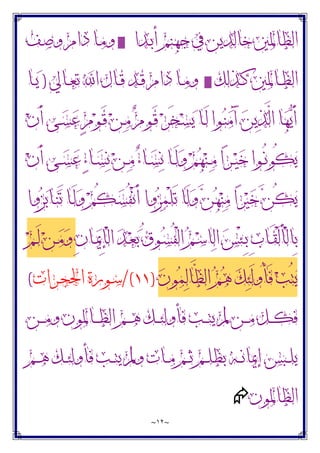 الظالمين خالدين في جهنم أبدا ■ وما دام وصف
الظالمين كذلك ■ وما دام قد قال الله تعالى (يا
أَيُّهَا الَّذِينَ آمَنُوا لَا يَسْخَرْ قَوْمٌ مِنْ قَوْمٍ عَسَىٰ أَنْ
يَكُونُوا خَيْرًا مِنْهُمْ وَلَا نِسَاءٌ مِنْ نِسَاءٍ عَسَىٰ أَنْ
يَكُنَّ خَيْرًا مِنْهُنَّ وَلَا تَلْمِزُوا أَنْفُسَكُمْ وَلَا تَنَابَزُوا
بِالْأَلْقَابِ بِئْسَ الِاسْمُ الْفُسُوقُ بَعْدَ الْإِيمَانِ وَمَنْ لَمْ
يَتُبْ فَأُولَئِكَ هُمُ الظَّالِمُونَ (١١)/سورة الحجرات)
فكل من لم يتب فأولئك هم الظالمون ومن
يلبس إيمانه بظلم ثم مات ولم يتب فأولئك هم
الظالمون
~١٢~